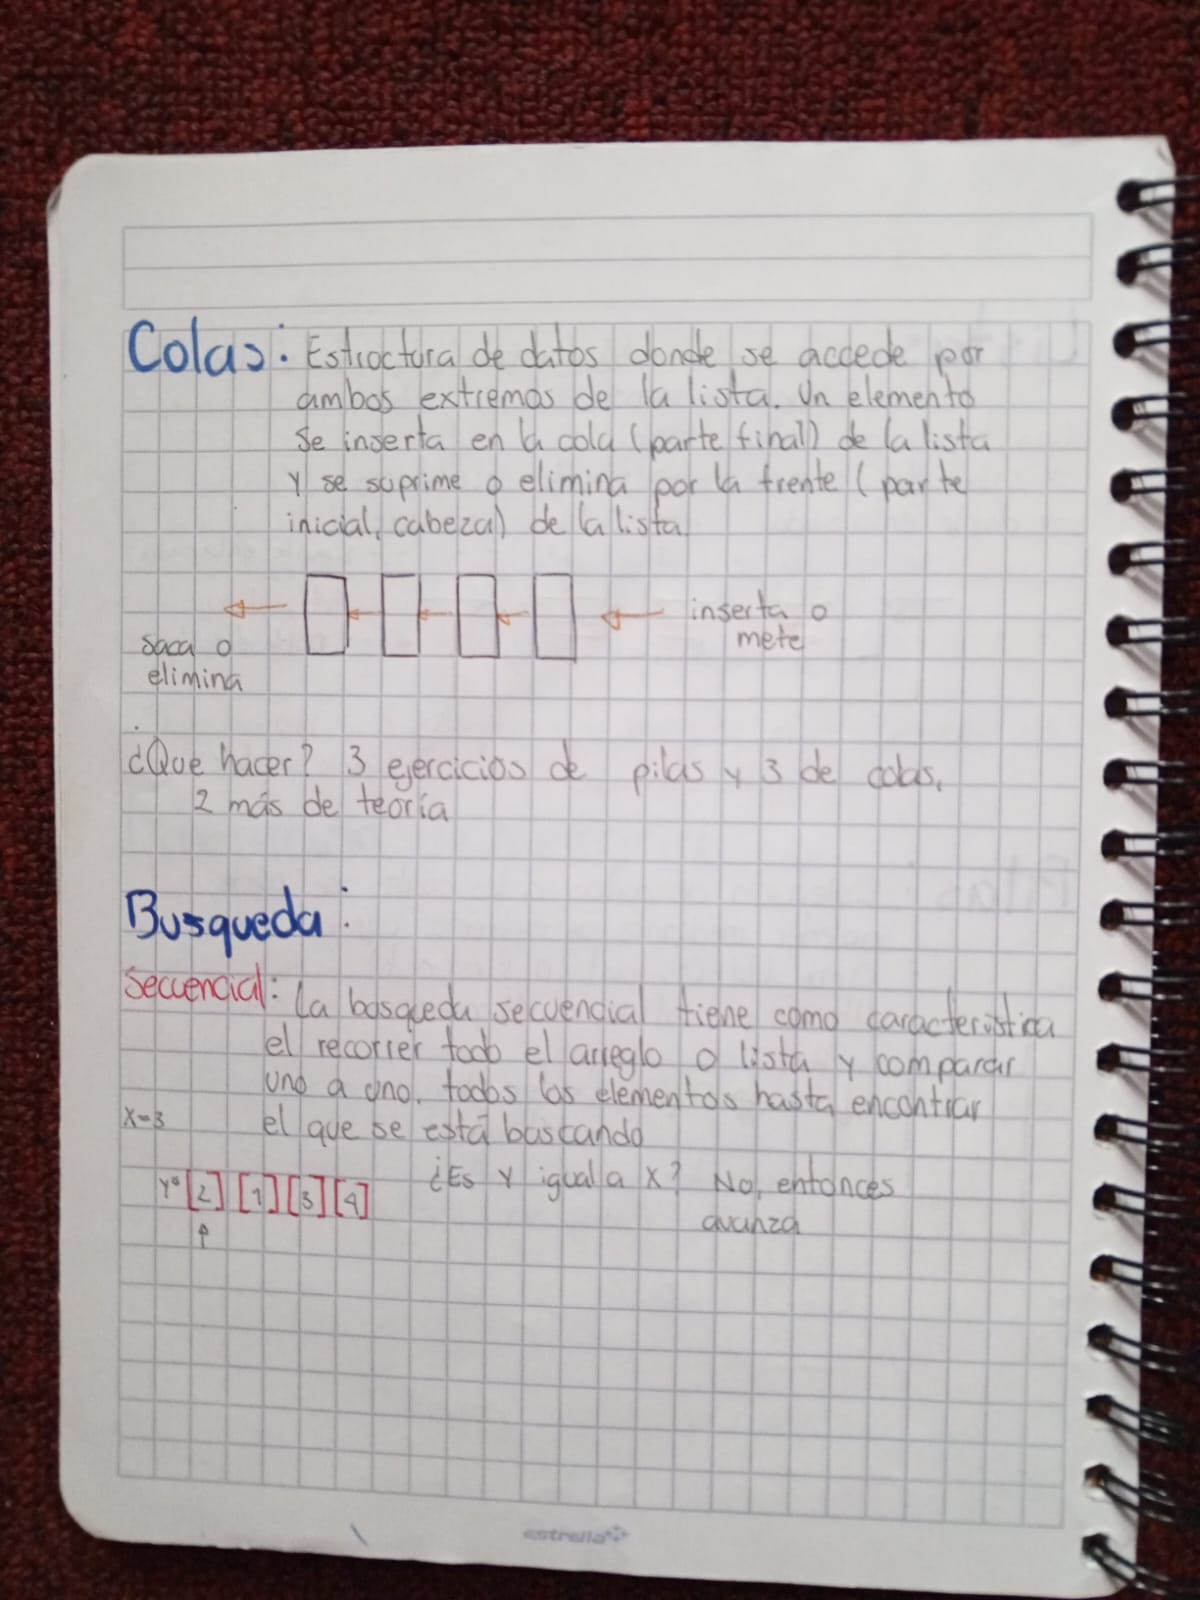 Colas: Estroctura de datos donde se accede por
ambos extremos de la lista. Un elemento
se inserta en la cola (parte final) de la lista
y se suprime o elimina por la frente (parte
inicial, cabeza) de la lista.
inserta o
mete
saca o
elimina
¿Que hacer? 3 ejercicios de pilas y 3 de colas,
2 más de teoría
Busqueda:
Secuencial: La bosqueda secuencial tiene como característica
el recorrer todo el arreglo o lista y comparar
uno a uno, todos los elementos hasta encontrar
x=3 el que se está buscando
y° [2] [1] [3] [4] ¿Es y igual a x? No, entonces
avanza
estrella